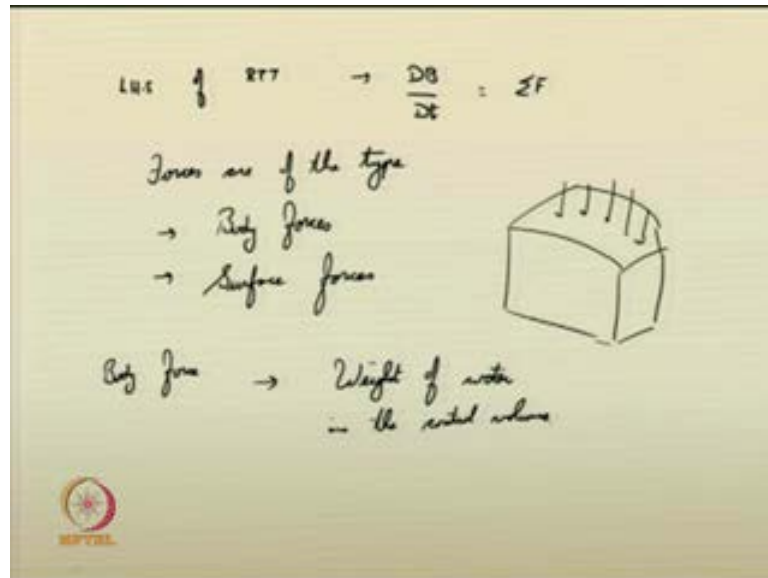 L.H.S of RTT → DB/Dt = ΣF
Forces are of the type
→ Body forces
→ Surface forces
Body force → Weight of water
in the control volume
NPTEL